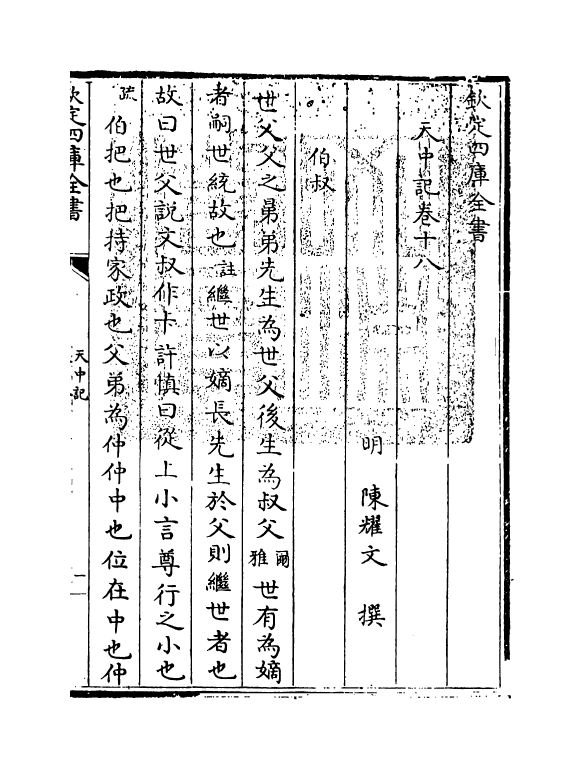 欽定四庫全書
天中記卷十八
明 陳耀文 撰
伯叔
世父父之晜弟先生為世父後生為叔父爾雅世有為嫡
者嗣世統故也註繼世以嫡長先生於父則繼世者也
故曰世父說文叔作尗許慎曰從上小言尊行之小也
疏伯把也把持家政也父弟為仲仲中也位在中也仲
欽定四庫全書
天中記
一